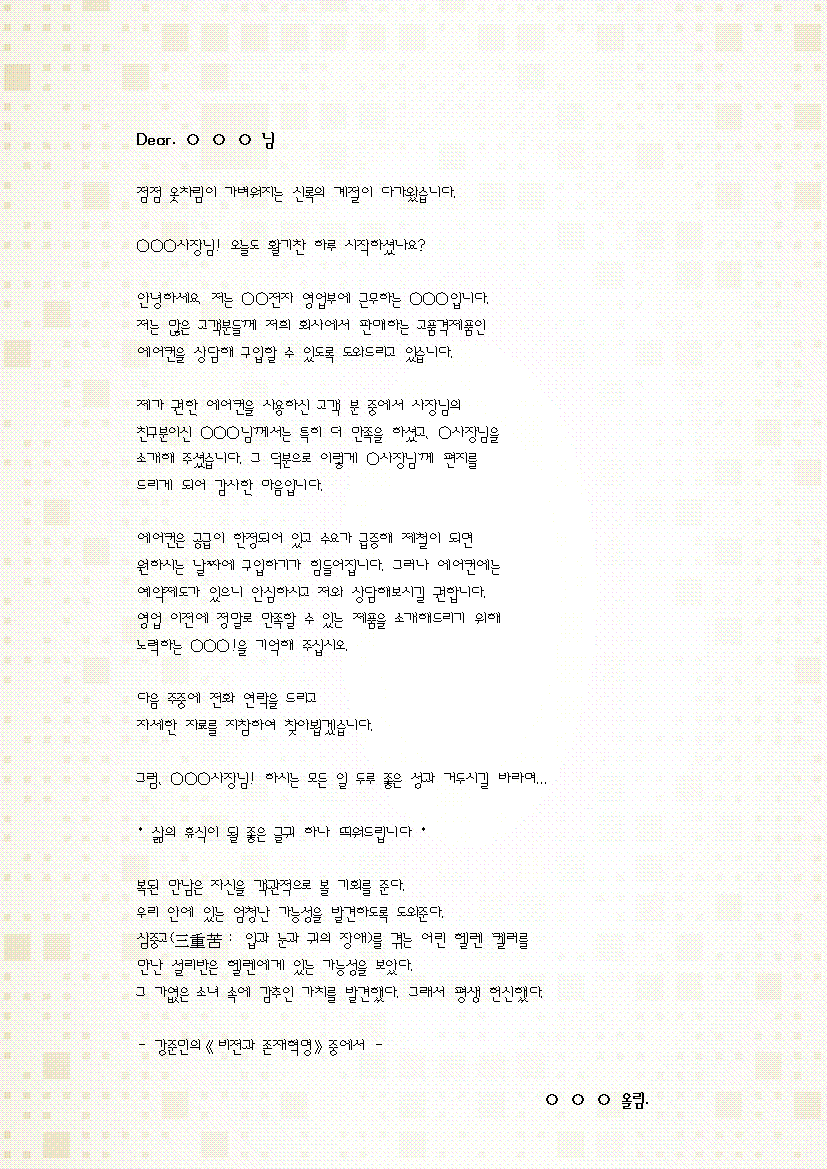 Dear. ○ ○ ○ 님
점점 옷차림이 가벼워지는 신록의 계절이 다가왔습니다.
○○○사장님! 오늘도 활기찬 하루 시작하셨나요?
안녕하세요. 저는 ○○전자 영업부에 근무하는 ○○○입니다.
저는 많은 고객분들께 저희 회사에서 판매하는 고품격제품인
에어컨을 상담해 구입할 수 있도록 도와드리고 있습니다.
제가 권한 에어컨을 사용하신 고객 분 중에서 사장님의
친구분이신 ○○○님께서는 특히 더 만족을 하셨고, ○사장님을
소개해 주셨습니다. 그 덕분으로 이렇게 ○사장님께 편지를
드리게 되어 감사한 마음입니다.
에어컨은 공급이 한정되어 있고 수요가 급증해 제철이 되면
원하시는 날짜에 구입하기가 힘들어집니다. 그러나 에어컨에는
예약제도가 있으니 안심하시고 저와 상담해보시길 권합니다.
영업 이전에 정말로 만족할 수 있는 제품을 소개해드리기 위해
노력하는 ○○○!을 기억해 주십시오.
다음 주중에 전화 연락을 드리고
자세한 자료를 지참하여 찾아뵙겠습니다.
그럼, ○○○사장님! 하시는 모든 일 두루 좋은 성과 거두시길 바라며...
* 삶의 휴식이 될 좋은 글귀 하나 띄워드립니다 *
복된 만남은 자신을 객관적으로 볼 기회를 준다.
우리 안에 있는 엄청난 가능성을 발견하도록 도와준다.
삼중고(三重苦 : 입과 눈과 귀의 장애)를 겪는 어린 헬렌 켈러를
만난 설리반은 헬렌에게 있는 가능성을 보았다.
그 가엾은 소녀 속에 감추인 가치를 발견했다. 그래서 평생 헌신했다.
- 강준민의《비전과 존재혁명》중에서 -
○ ○ ○ 올림.